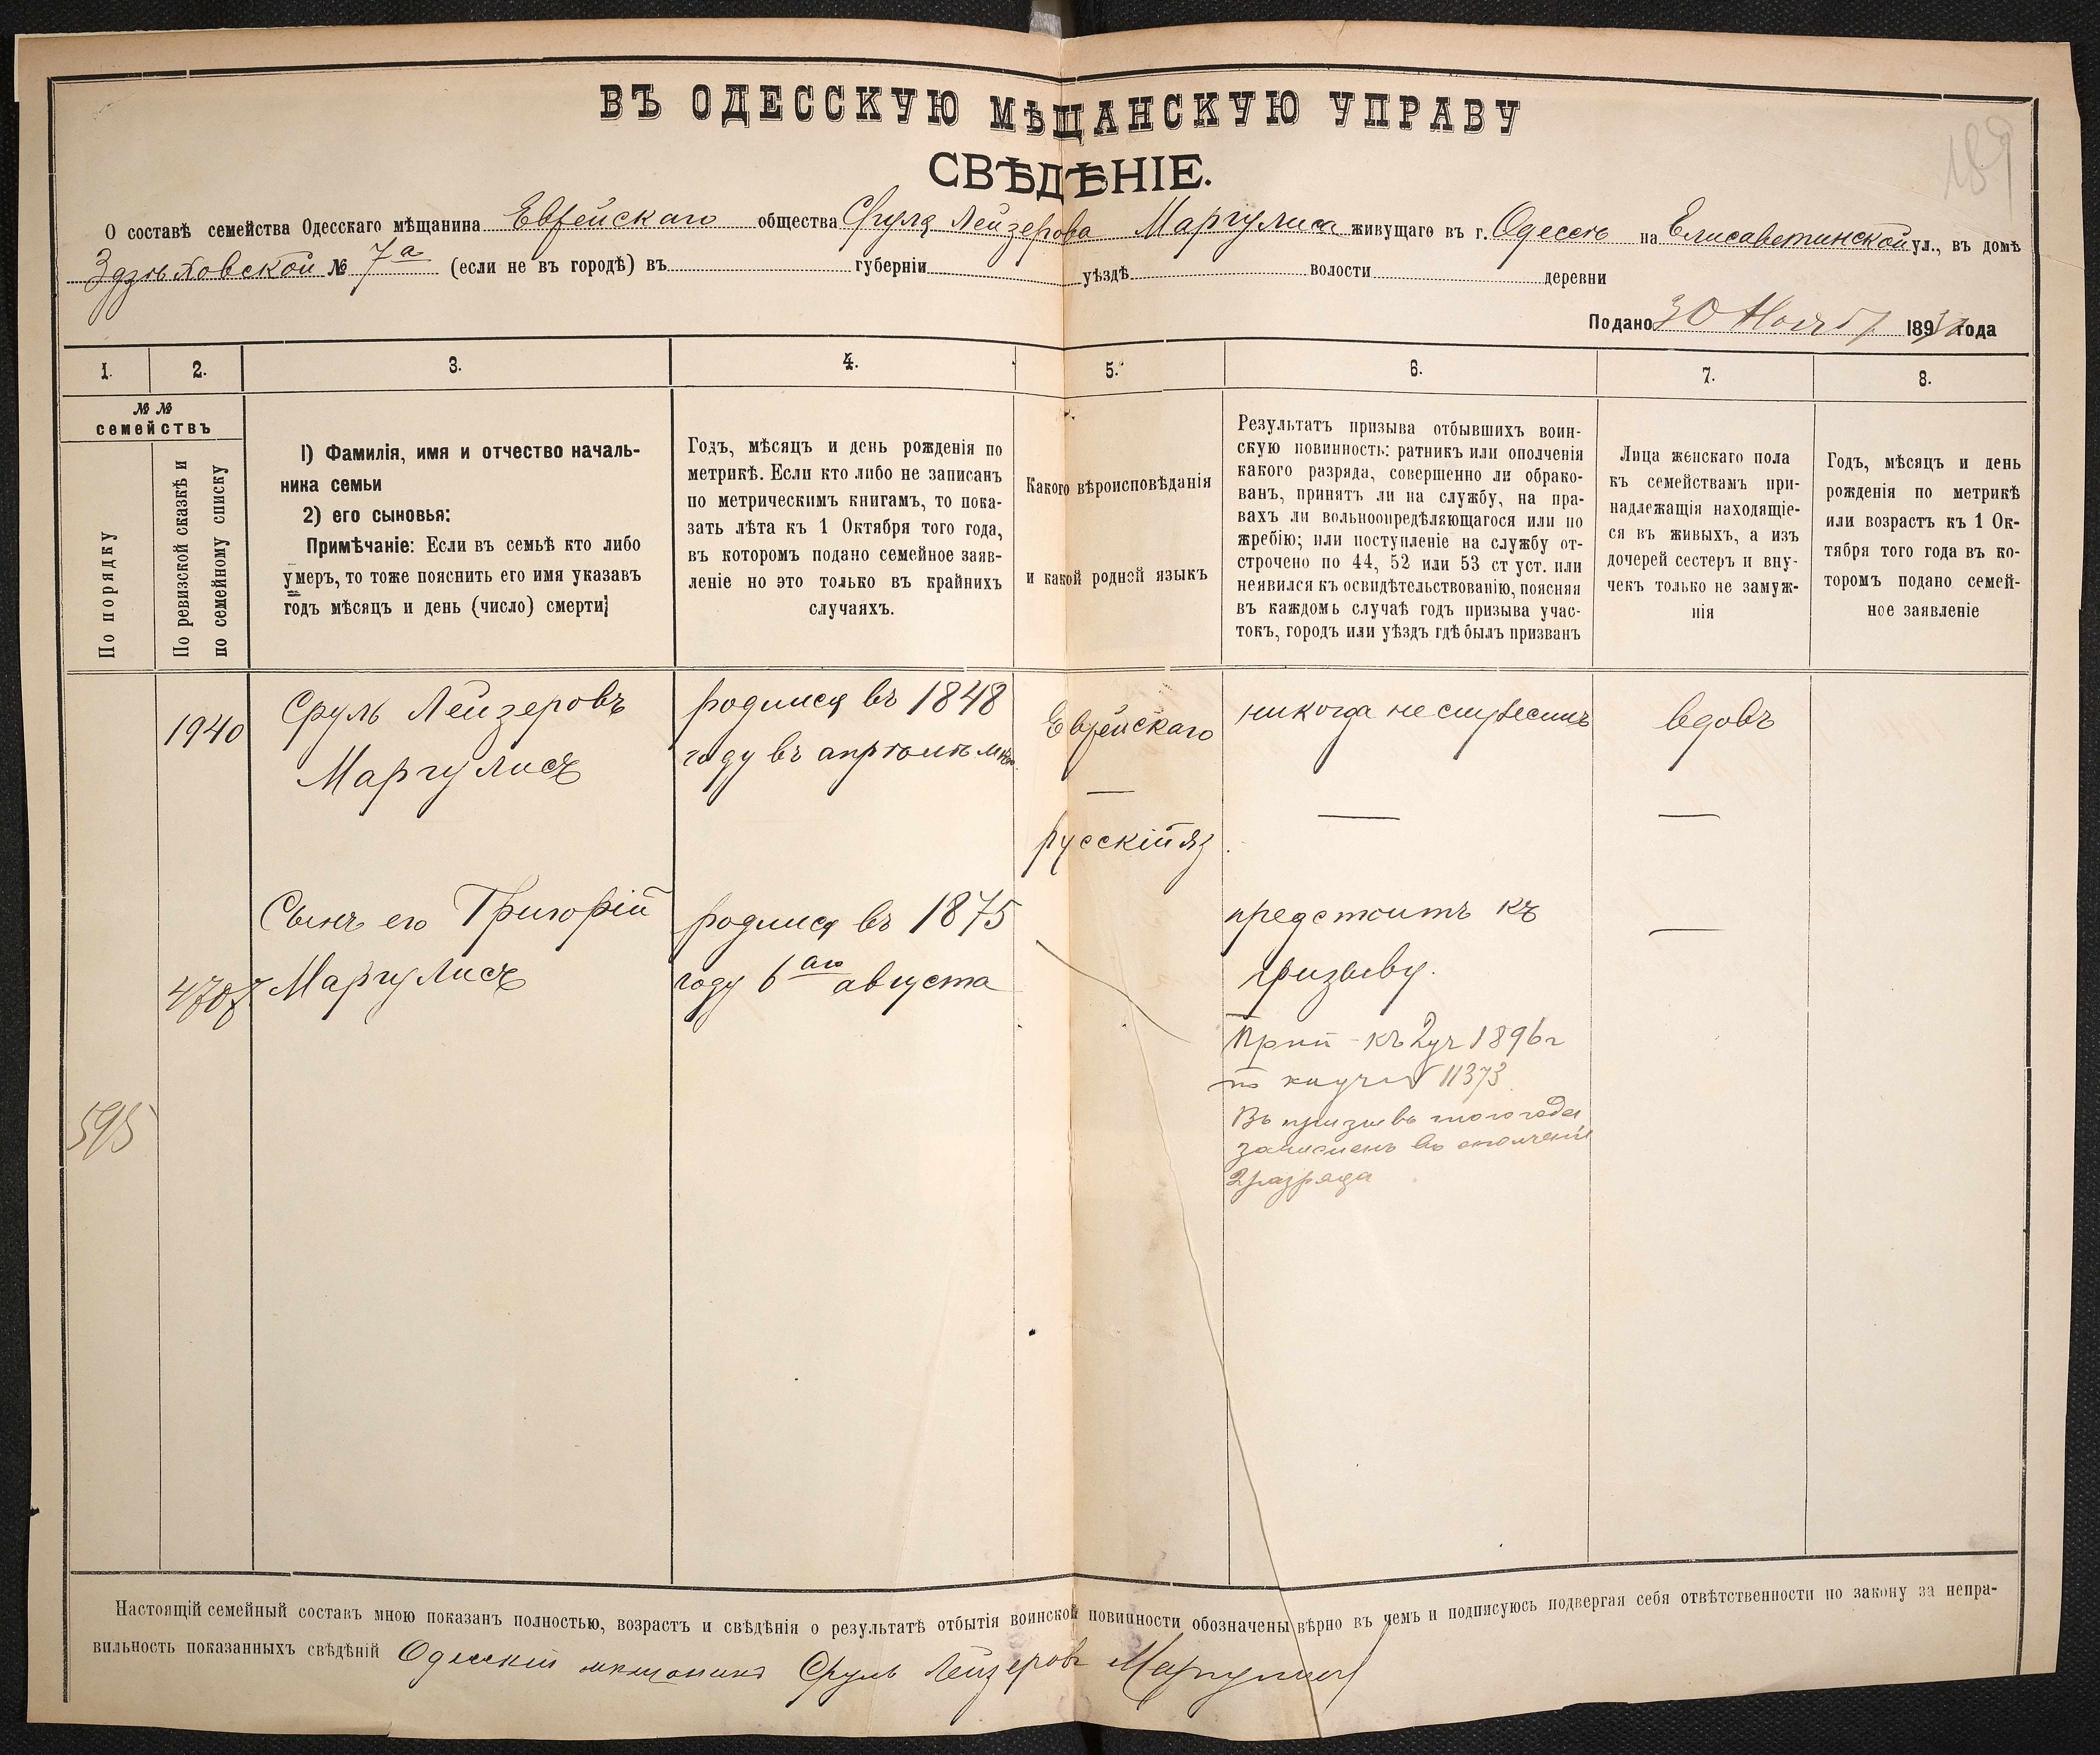 189
ВЪ ОДЕССКУЮ МѢЩАНСКУЮ УПРАВУ
СВѢДѢНІЕ.
О составѣ семейства Одесскаго мѣщанина Еврейскаго общества Сруля Лейзерова Маргулиса живущаго въ г. Одессѣ на Елисаветинской ул., въ домѣ
№ 7а (если не въ городѣ) въ губерніи уѣздѣ волости деревни
Подано 30 Ноябр 189 года
1. 2. 3. 4. 5. 6. 7. 8.
№ №
семействъ
По порядку
По ревизской сказкѣ и
по семейному списку
1) Фамилія, имя и отчество началь-
ника семьи
2) его сыновья:
Примѣчаніе: Если въ семьѣ кто либо
умеръ, то тоже пояснить его имя указавъ
годъ мѣсяцъ и день (число) смерти;
Годъ, мѣсяцъ и день рожденія по
метрикѣ. Если кто либо не записанъ
по метрическимъ книгамъ, то пока-
зать лѣта къ 1 Октября того года,
въ которомъ подано семейное заяв-
леніе но это только въ крайнихъ
случаяхъ.
Какого вѣроисповѣданія
и какой родной языкъ
Результатъ призыва отбывшихъ воин-
скую повинность: ратникъ или ополченія
какого разряда, совершенно ли обрако-
ванъ, принятъ ли на службу, на пра-
вахъ ли вольноопредѣляющагося или по
жребію; или поступленіе на службу от-
строчено по 44, 52 или 53 ст уст. или
неявился къ освидѣтельствованію, поясняя
въ каждомъ случаѣ годъ призыва учас-
токъ, городъ или уѣздъ гдѣ былъ призванъ
Лица женскаго пола
къ семействамъ при-
надлежащія находящіе-
ся въ живыхъ, а изъ
дочерей сестеръ и вну-
чекъ только не замуж-
нія
Годъ, мѣсяцъ и день
рожденія по метрикѣ
или возрастъ къ 1 Ок-
тября того года въ ко-
торомъ подано семей-
ное заявленіе
1940 Сруль Лейзеровъ
Маргулисъ
родился въ 1848
году въ апрѣлѣ
Еврейскаго
русскій яз
никогда не
вдовъ
Сынъ его Григорій
4707 Маргулисъ
родился въ 1875
году 6аго августа
предстоитъ къ
призыву.
Прип къ 2 уч 1896 г
по 11373
Въ призывъ того года
зачисленъ въ ополченіе
2 разряда
595
Настоящій семейный составъ мною показанъ полностью, возрастъ и свѣдѣнія о результатѣ отбытія воинской повинности обозначены вѣрно въ чемъ и подписуюсь подвергая себя отвѣтственности по закону за непра-
вильность показанныхъ свѣдѣній Одесскій мѣщанинъ Сруль Лейзеровъ Маргулисъ